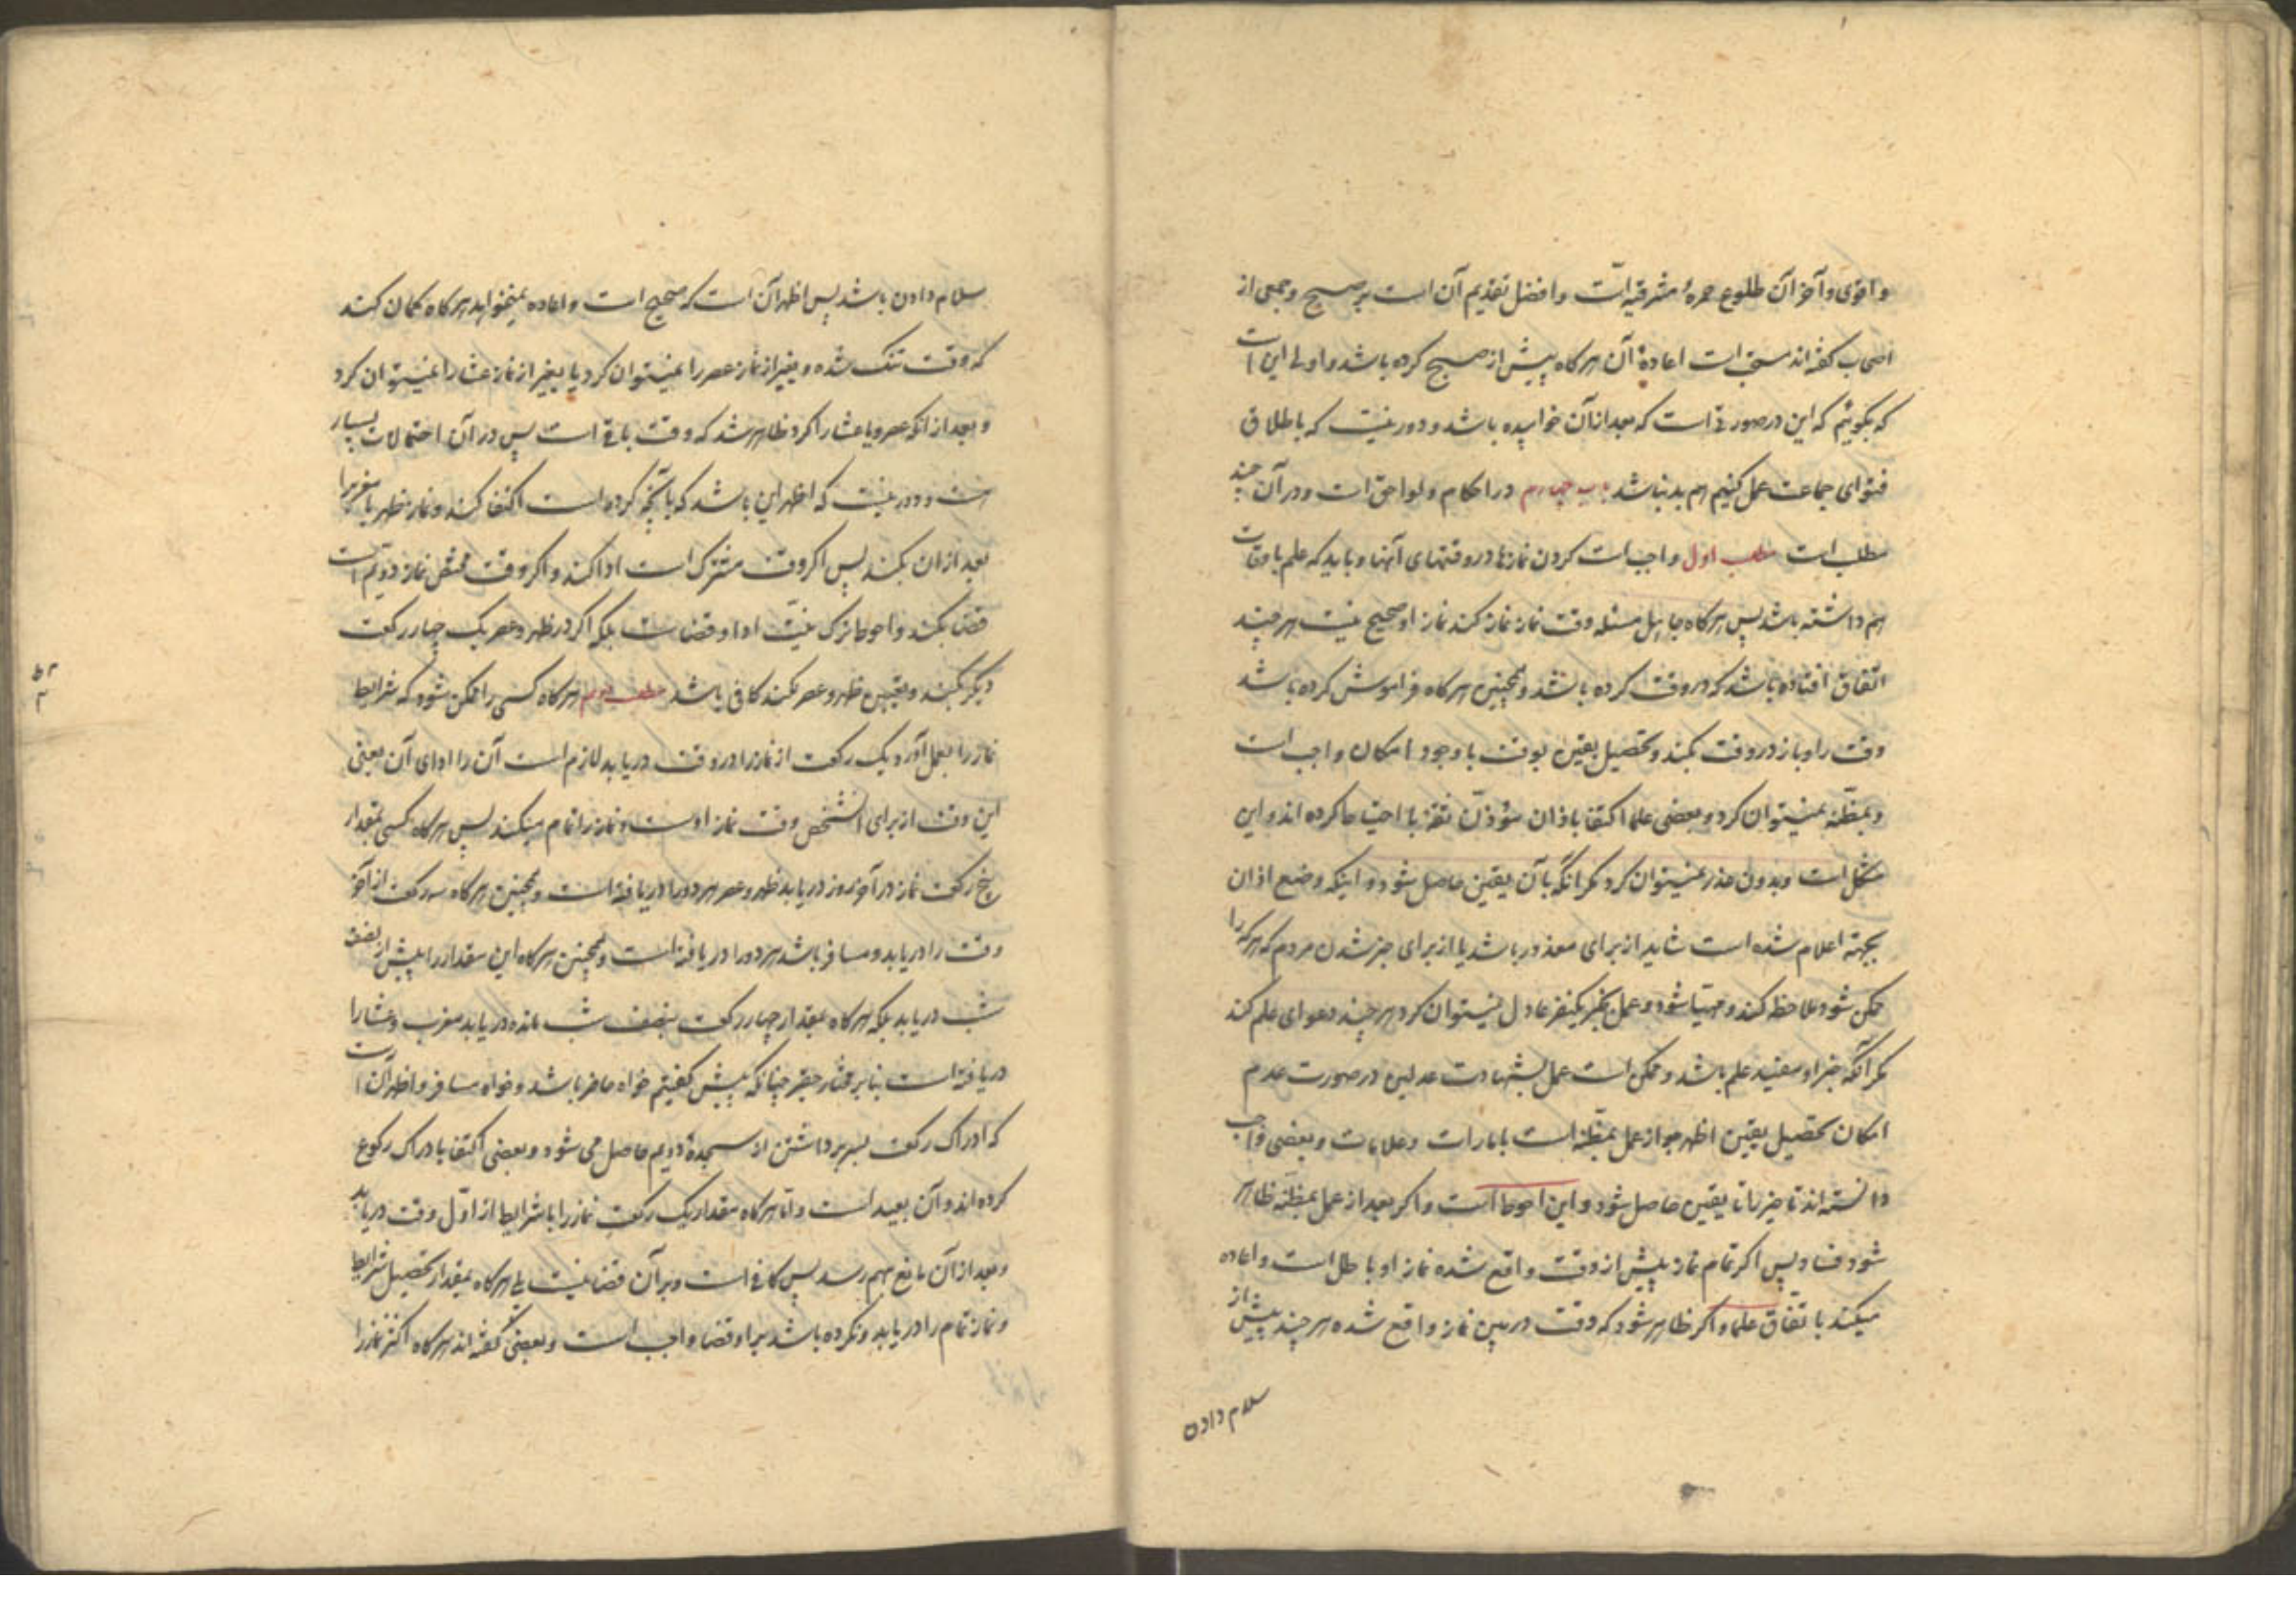 واقوی وآخر آن طلوع حمرهٔ مشرقیه است وافضل تقدیم آن است بر صبح وجمعی از
اصحاب گفته‌اند مستحب است اعادهٔ آن هرکاه پیش از صبح کرده باشد واولی این است
که بگوئیم که این در صورتی است که بعد از آن خوابیده باشد ودور نیست که باطلاق
فتوای جماعت عمل کنیم هم بد نباشد باب چهارم در احکام ولواحق است ودر آن چند
مطلب است مطلب اول واجب است کردن نمازها در وقتهای آنها وباید که علم باوقات
هم داشته باشد پس هرکاه جاهل مسئله وقت نماز نماز کند نماز او صحیح نیست هر چند
اتفاق افتاده باشد که در وقت کرده باشد وهمچنین هرکاه فراموش کرده باشد
وقت را وباز در وقت بکند وتحصیل یقین بوقت با وجود امکان واجب است
وبمظنّه نمیتوان کرد وبعضی علما اکتفا باذان مؤذّن ثقة با احتیاط کرده اند واین
مشکل است وبدون عذر نمیتوان کرد مکر آنکه بآن یقین حاصل شود واینکه وضع اذان
بجهة اعلام شده است شاید از برای معذور باشد یا از برای خبر شدن مردم که هرکه را
ممکن شود ملاحظه کند ومهیّا شود وعمل بخبر یکنفر عادل نمیتوان کرد هر چند دعوای علم کند
مکر آنکه خبر او مفید علم باشد وممکن است عمل بشهادت عدلین در صورت عدم
امکان تحصیل یقین اظهر جواز عمل بمظنّه است بامارات وعلامات وبعضی واجب
دانسته‌اند تاخیر را تا یقین حاصل شود واین احوط است واکر بعد از عمل بمظنّه ظاهر
شود فساد پس اکر تمام نماز پیش از وقت واقع شده نماز او باطل است واعاده
میکند باتفاق علما واکر ظاهر شود که وقت در بین نماز واقع شده هر چند پیش از
سلام دادن
سلام دادن باشد پس اظهر آن است که صحیح است واعاده نمیخواهد هرکاه کمان کند
که وقت تنک شده وبغیر از نماز عصر را نمیتوان کرد یا بغیر از نماز عشا را نمیتوان کرد
وبعد از آنکه عصر ویا عشا را کرد ظاهر شد که وقت باقی است پس در آن احتمالات بسیار
است ودور نیست که اظهر این باشد که بآنچه کرده است اکتفا کند ونماز ظهر یا مغرب را
بعد از ان بکند پس اکر وقت مشترک است ادا کند واکر وقت مختص نماز دویّم است
قضا بکند واحوط ترک نیّت ادا وقضا است بلکه اکر در ظهر وعصر یک چهار رکعت
دیکر بکند وتعیین ظهر وعصر نکند کافی باشد مطلب دویم هرکاه کسی را ممکن شود که شرایط
نماز را بعمل آورد ویک رکعت از نماز را در وقت دریابد لازم است آن را ادای آن یعنی
این وقت از برای آنشخص وقت نماز اوست ونماز را تمام میکند پس هرکاه کسی بمقدار
پنج رکعت نماز در آخر روز دریابد ظهر وعصر هر دو را دریافته است وهمچنین هرکاه سه رکعت از آخر
وقت را دریابد ومسافر باشد هر دو را دریافته است وهمچنین هرکاه این مقدار را پیش از نصف
شب دریابد بلکه هرکاه بمقدار چهار رکعت بنصف شب مانده دریابد مغرب وعشا را
دریافته است بنا بر مختار حقیر چنانکه پیش کفتیم خواه حاضر باشد وخواه مسافر واظهر آن است
که ادراک رکعت بسر برداشتن از سجدهٔ دویم حاصل می شود وبعضی اکتفا بادراک رکوع
کرده اند وآن بعید است وامّا هرکاه مقدار یک رکعت نماز را با شرایط از اوّل وقت دریابد
وبعد از آن مانع بهم رسد پس کافی است وبر آن قضا نیست بلی هرکاه بمقدار تحصیل شرایط
ونماز تمام را دریابد ونکرده باشد بر او قضا واجب است وبعضی گفته اند هرکاه اکثر نماز را